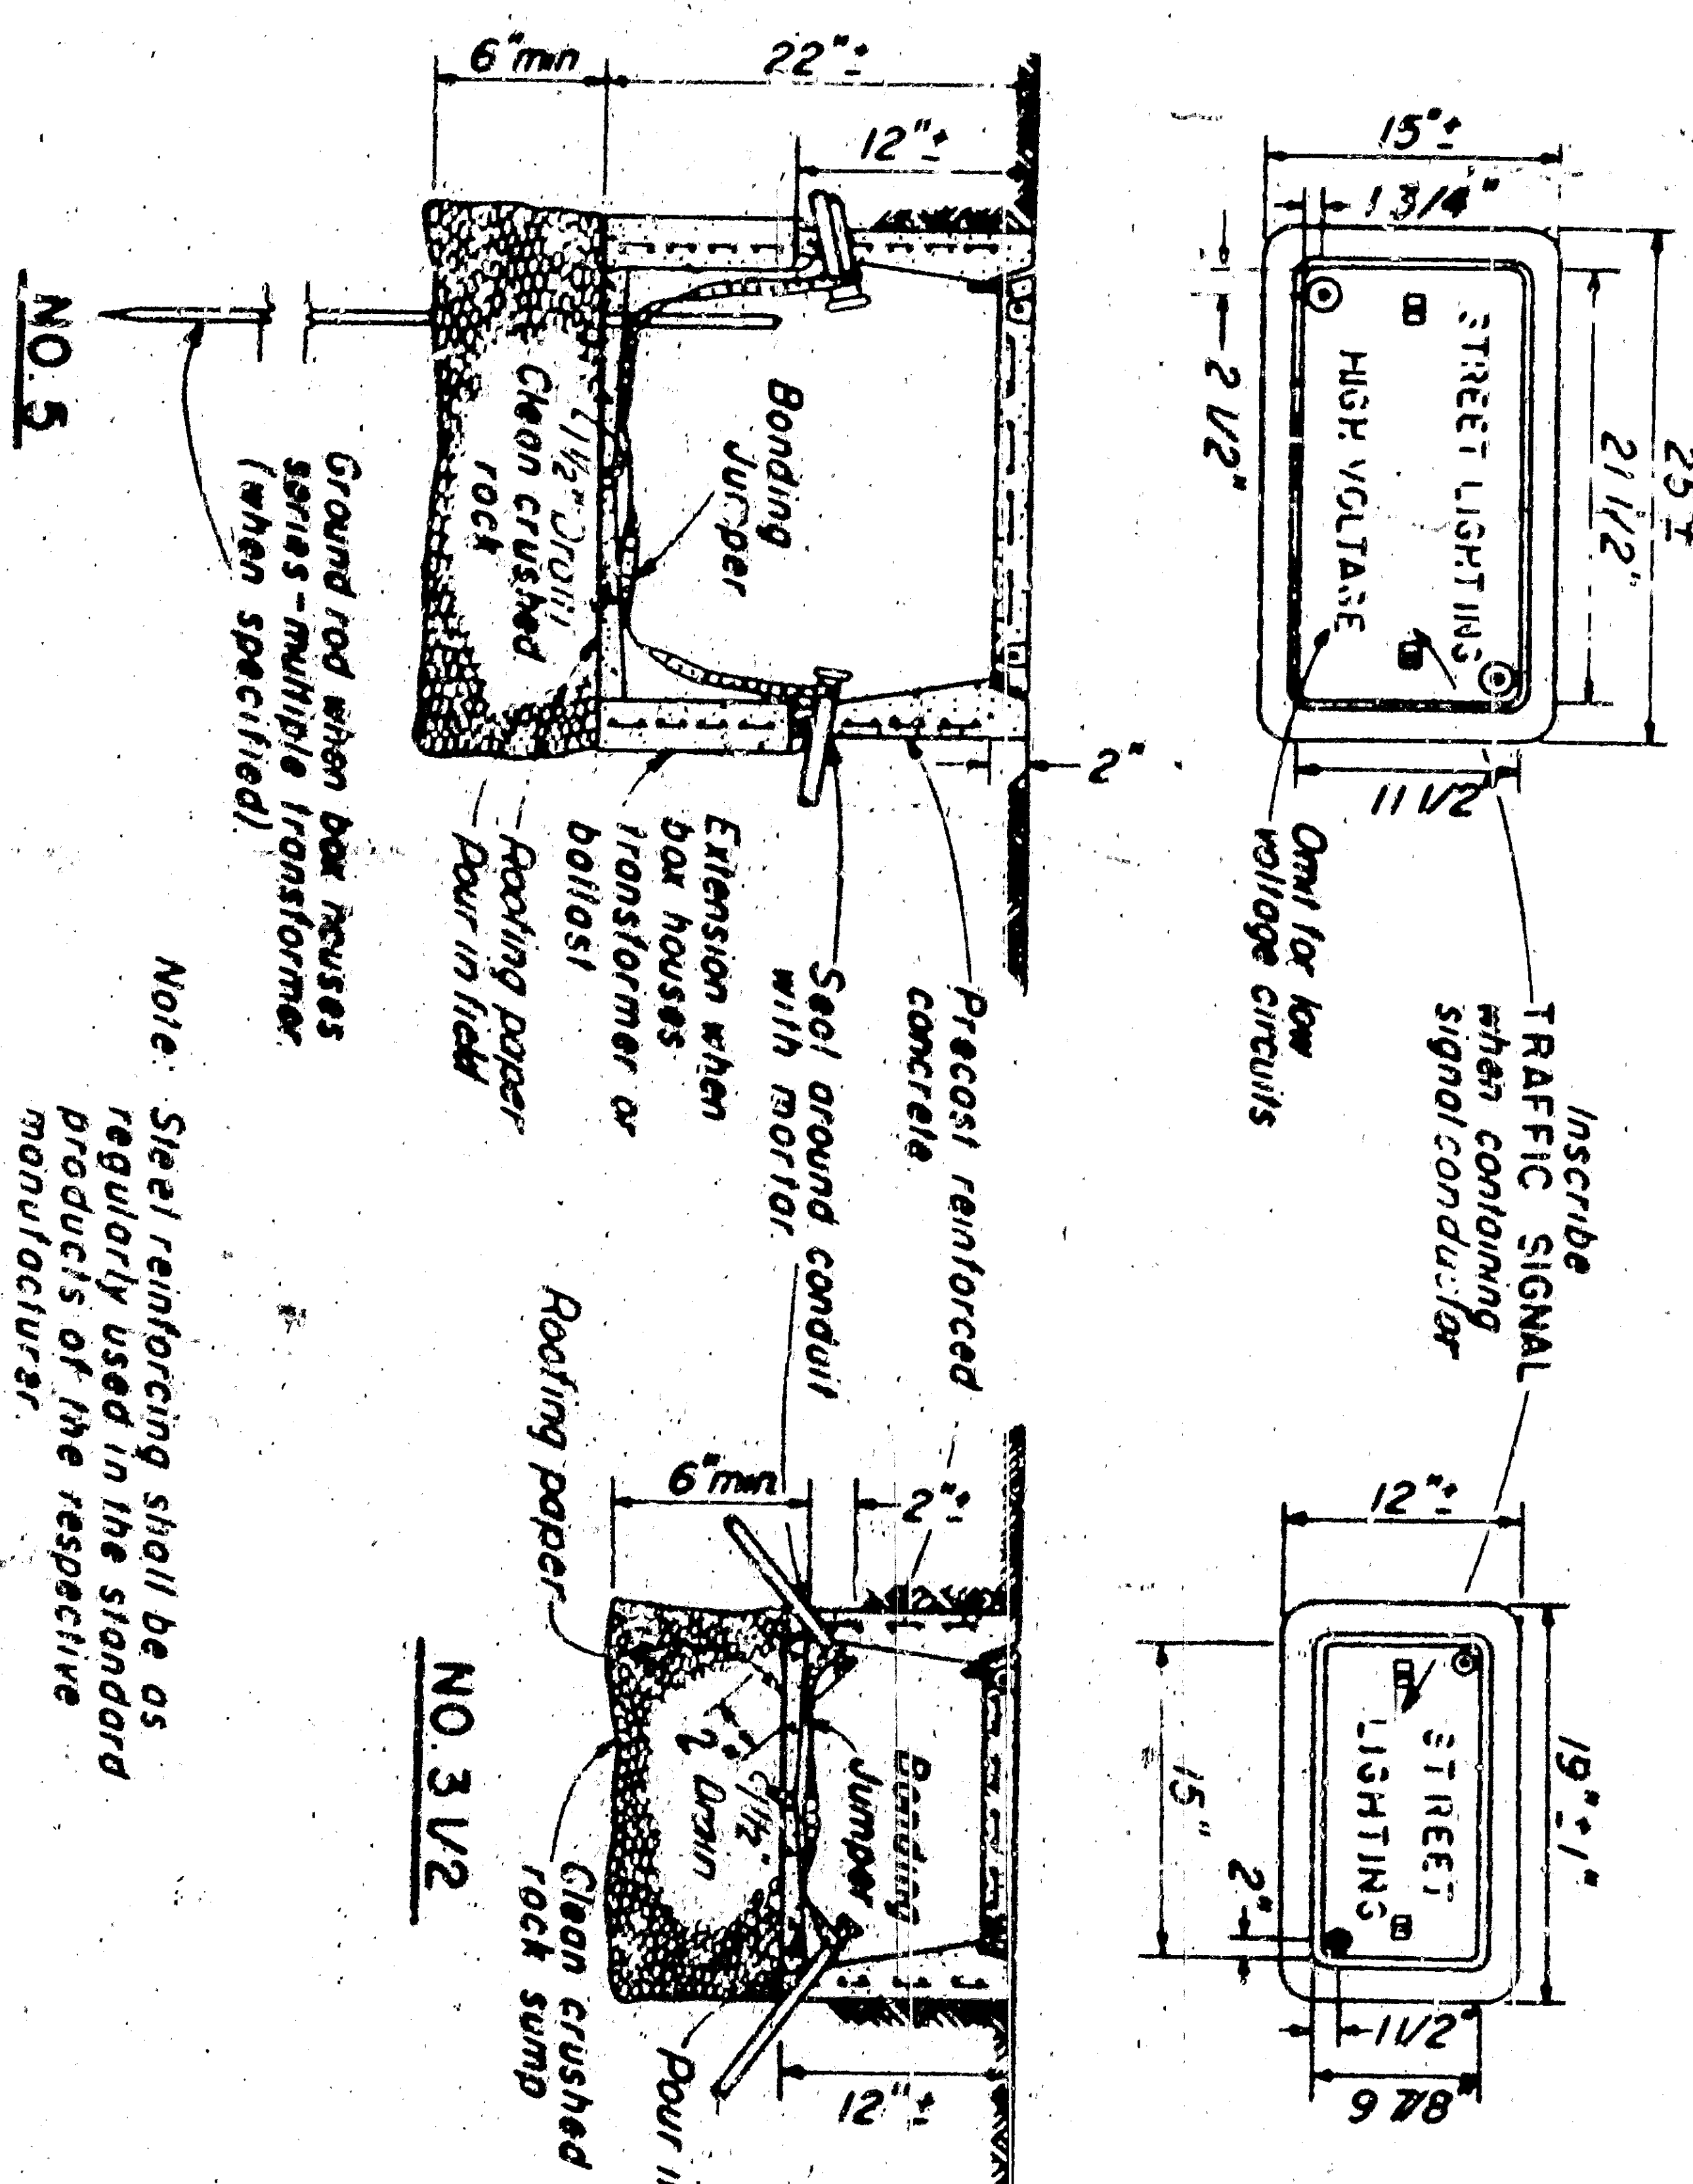 25 ±
21 1/2"
15"±
1 3/4"
STREET LIGHTING
HIGH VOLTAGE
2 1/2"
11 1/2
Omit for low
voltage circuits
Inscribe
TRAFFIC SIGNAL
when containing
signal conductor
19"±1"
12"±
STREET
LIGHTING
15"
2"
1 1/2"
9 7/8"
22"±
6"min
12"±
2"
Bonding
Jumper
1 1/2" Drain
Clean crushed
rock
Precast reinforced
concrete
Seal around conduit
with mortar
Extension when
box houses
transformer or
ballast
Roofing paper
Pour in field
Ground rod when box houses
series-multiple transformer
(when specified)
NO. 5
6"min
2"±
Bonding
Jumper
1 1/2"
Drain
2"±
12"±
Roofing paper
Clean crushed
rock sump
Pour
NO. 3 1/2
Note: Steel reinforcing shall be as
regularly used in the standard
products of the respective
manufacturer.